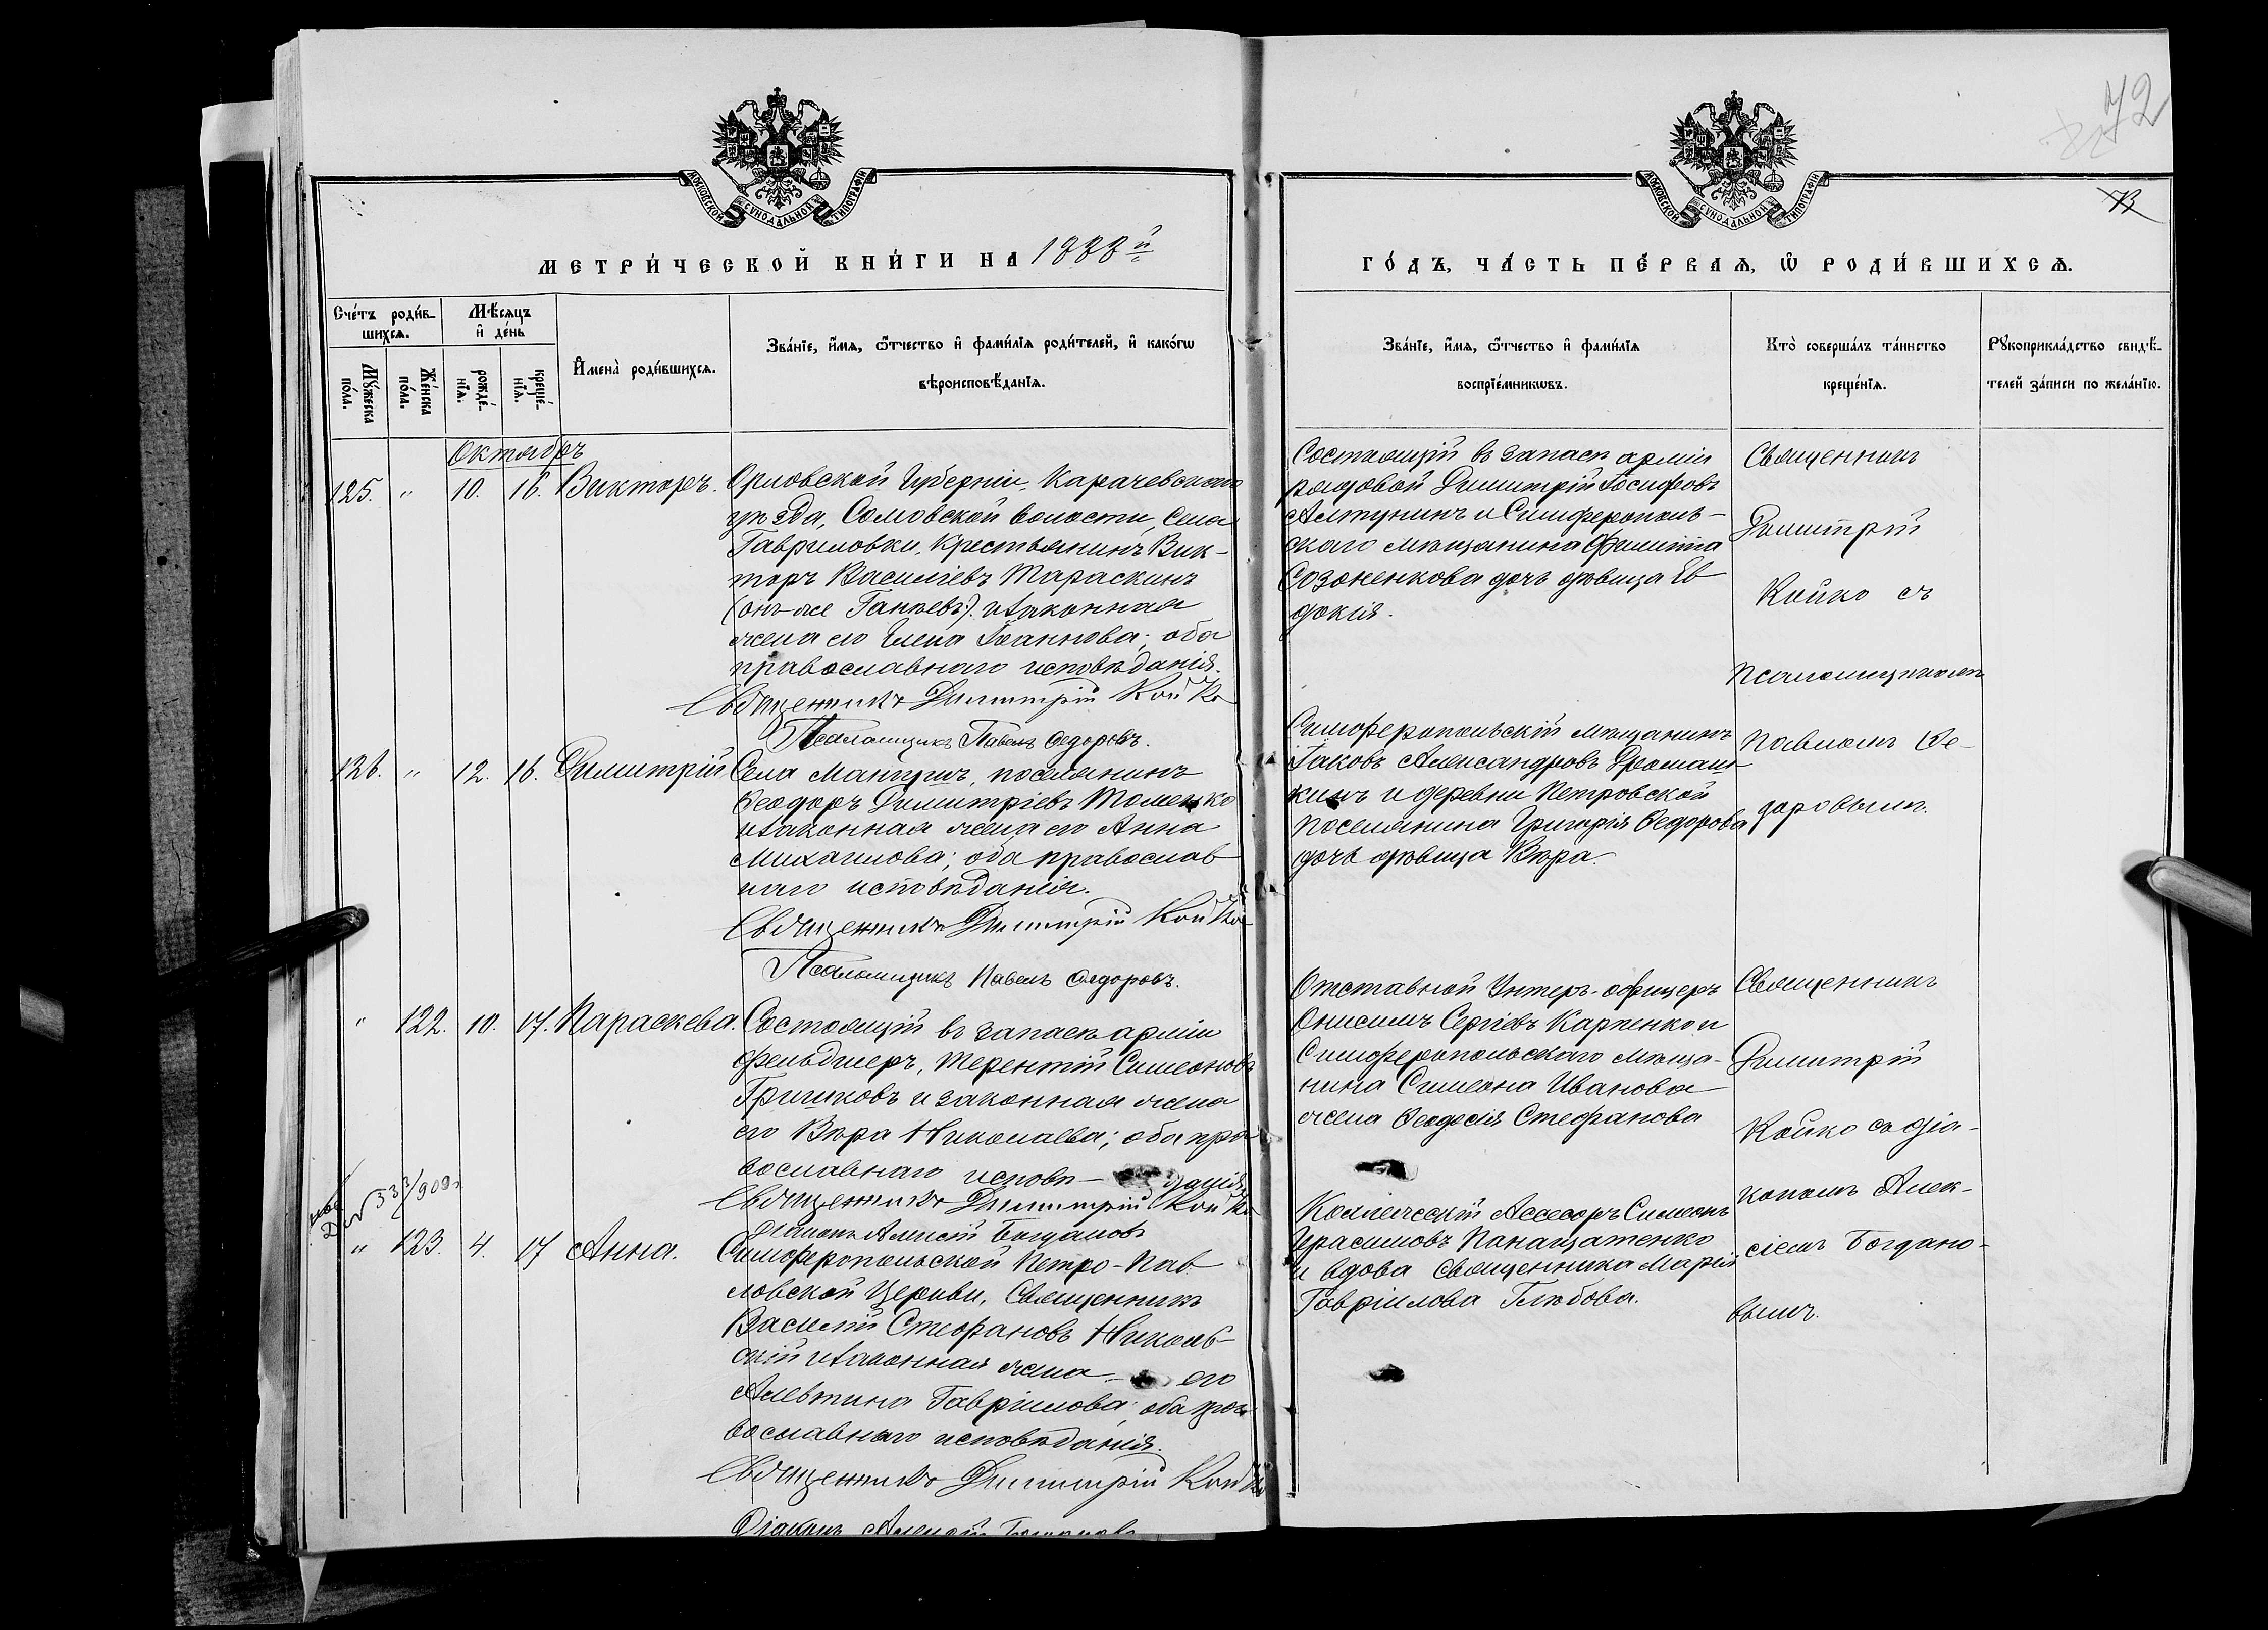 72
73
МОСКОВСКОЙ СѴНОДАЛЬНОЙ ТИПОГРАФІИ
МОСКОВСКОЙ СѴНОДАЛЬНОЙ ТИПОГРАФІИ
МЕТРИ́ЧЕСКОЙ КНИ́ГИ НА 1888й
ГО́ДЪ, ЧА́СТЬ ПЕ́РВАѦ, Ѿ РОДИ́ВШИХСѦ.
Сче́тъ роди́в-
шихсѧ.
Мѣ́сѧцъ
и҆ де́нь
Мꙋ́жеска по́ла.
Же́нска по́ла.
рожде́-нїѧ.
креще́-нїѧ.
И҆мена̀ роди́вшихсѧ.
Зва́нїе, и҆́мѧ, ѻ҆́тчество и҆ фами́лїѧ роди́телей, и҆ како́гѡ
вѣроисповѣ́данїѧ.
Зва́нїе, и҆́мѧ, ѻ҆́тчество и҆ фами́лїѧ
воспрїе́мникѡвъ.
Кто̀ соверша́лъ та́инство
креще́нїѧ.
Рꙋкоприкла́дство свидѣ́-
телей за́писи по жела́нїю.
Октябрь
125. " 10. 16. Викторъ. Орловской Губерніи, Карачевскаго
уѣзда, Сомовской волости, Села
Гавриловки, Крестьянинъ Вик-
торъ Василіевъ Тараскинъ
(онъ же Ганѣевъ). и законная
жена его Елена Іоаннова; оба
православнаго исповѣданія.
Священникъ Димитрій Койко
Псаломщикъ Павелъ Федоровъ.
Состоящій въ запасѣ арміи
рядовой Димитрій Іосифовъ
Алтунинъ и Симферополь-
скаго мѣщанина Филиппа
Созоненкова дочь дѣвица Ев-
докія.
Священникъ
Димитрій
Койко съ
псаломщикомъ
Павломъ Ѳе-
доровымъ.
126. " 12. 16. Димитрій Села Мангушъ, поселянинъ
Ѳеодоръ Димитріевъ Томенко
и законная жена его Анна
Михаилова; оба православ-
наго исповѣданія.
Священникъ Димитрій Койко
Псаломщикъ Павелъ Федоровъ.
Симферопольскій мѣщанинъ
Іаковъ Александровъ Дромаш-
кинъ и деревни Петровской
поселянина Григорія Ѳедорова
дочь дѣвица Вѣра.
" 122. 10. 17. Параскева. Состоящій въ запасѣ арміи
фельдшеръ, Терентій Симеоновъ
Гришковъ и законная жена
его Вѣра Николаева; оба пра-
вославнаго исповѣ- данія.
Священникъ Димитрій Койко
Діаконъ Алексій Богдановъ
Отставной Унтеръ-офицеръ
Онисимъ Сергіевъ Карпенко и
Симферопольскаго мѣща-
нина Симеона Иванова
жена Ѳеодосія Стефанова
Священникъ
Димитрій
Койко съ діа-
кономъ Алек-
сіемъ Богдано-
вымъ.
№ 333/909
" 123. 4. 17 Анна. Симферопольской Петро-Пав-
ловской Церкви, Священникъ
Василій Стефановъ Николь-
скій и законная жена его
Алевтина Гавріилова; оба пра-
вославнаго исповѣданія.
Священникъ Димитрій Койко
Діаконъ Алексій Богдановъ
Коллежскій Ассесоръ Симеонъ
Герасимовъ Панащатенко
и вдова священника Марія
Гавріилова Глѣбова.